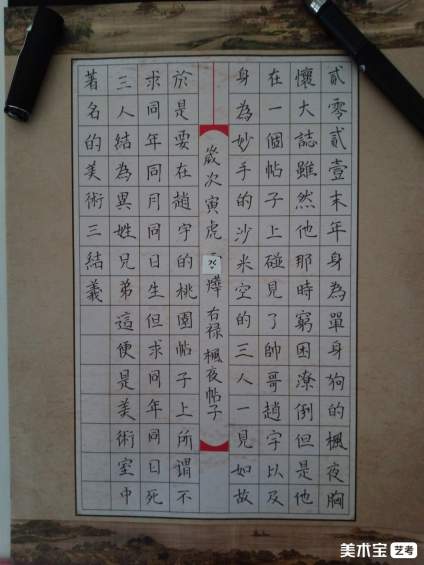 貳零貳壹末年身為單身狗的楓夜胸
懷大誌雖然他那時窮困潦倒但是他
在一個帖子上碰見了帥哥趙字以及
身為妙手的沙米空的三人一見如故
歲次寅虎 燁右祿楓夜帖子
於是要在趙字的桃園帖子上所謂不
求同年同月同日生但求同年同日死
三人結為異姓兄弟這便是美術空中
著名的美術三結義
美术宝 艺考